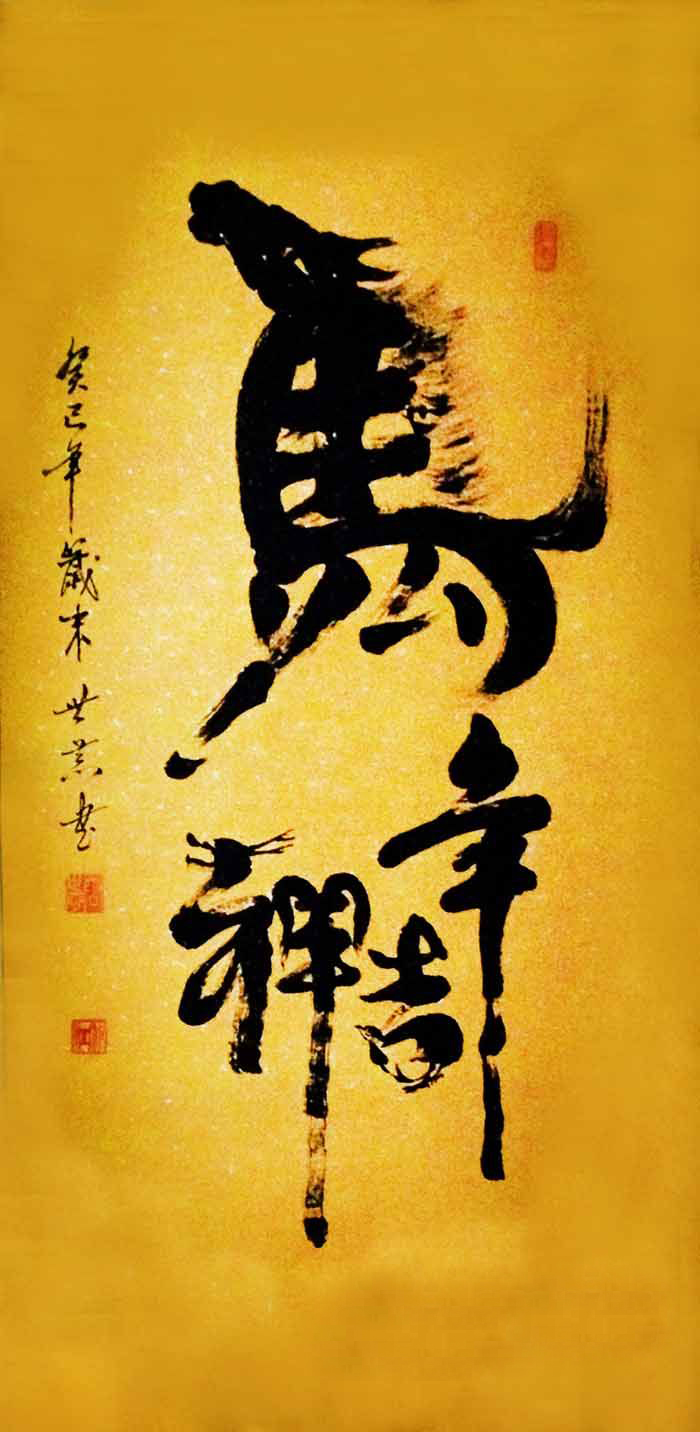 馬年吉祥
癸巳年歲末世業書